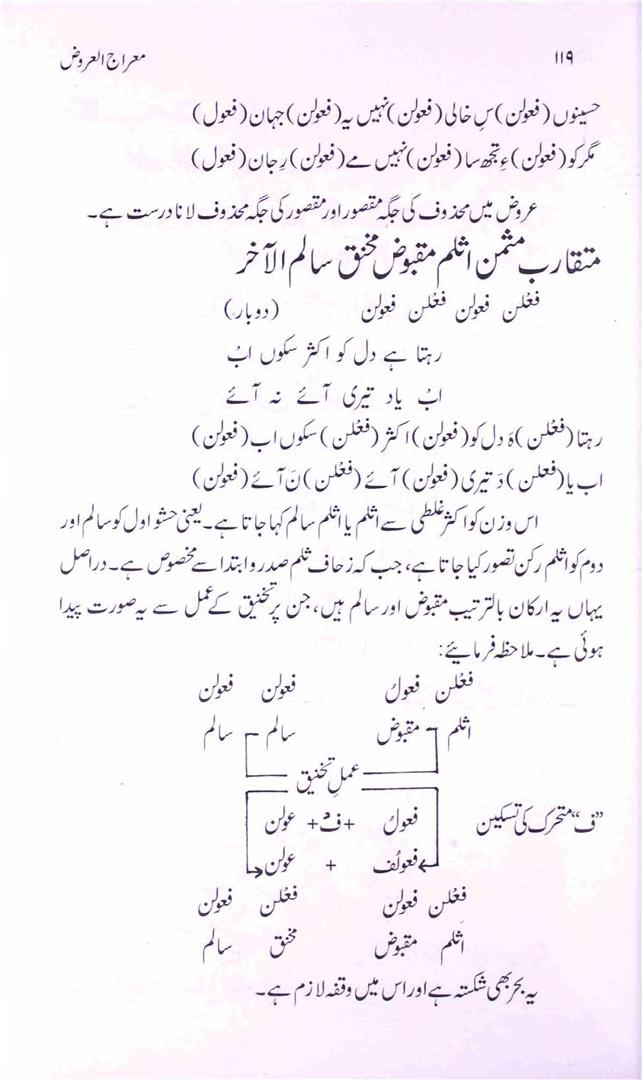 ۱۱۹ معراج العروض
حسینوں (فعولن) سِ خالی (فعولن) نہیں یہ (فعولن) جہان (فعول)
مگر کو (فعولن) ءِ تجھ سا (فعولن) نہیں مے (فعولن) رِ جان (فعول)
عروض میں محذوف کی جگہ مقصور اور مقصور کی جگہ محذوف لانا درست ہے۔
متقارب مثمن اثلم مقبوض مخنق سالم الآخر
فعْلن فعولن فعْلن فعولن (دوبار)
رہتا ہے دل کو اکثر سکوں ابْ
ابْ یاد تیری آئے نہ آئے
رہتا (فعْلن) ہَ دل کو (فعولن) اکثر (فعْلن) سکوں اب (فعولن)
اب یا (فعلن) دَ تیری (فعولن) آئے (فعْلن) نَ آئے (فعولن)
اس وزن کو اکثر غلطی سے اثلم یا اثلم سالم کہا جاتا ہے۔ یعنی حشو اول کو سالم اور
دوم کو اثلم رکن تصور کیا جاتا ہے، جب کہ زحاف ثلم صدر و ابتدا سے مخصوص ہے۔ دراصل
یہاں یہ ارکان بالترتیب مقبوض اور سالم ہیں، جن پر تخنیق کے عمل سے یہ صورت پیدا
ہوئی ہے۔ ملاحظہ فرمائیے:
فعْلن فعولُ فعولن فعولن
اثلم مقبوض سالم سالم
عملِ تخنیق
”ف“ متحرک کی تسکین فعولُ + فْ + عولن
فعولُف + عولن
فعْلن فعولن فعْلن فعولن
اثلم مقبوض مخنق سالم
یہ بحر بھی شکستہ ہے اور اس میں وقفہ لازم ہے۔